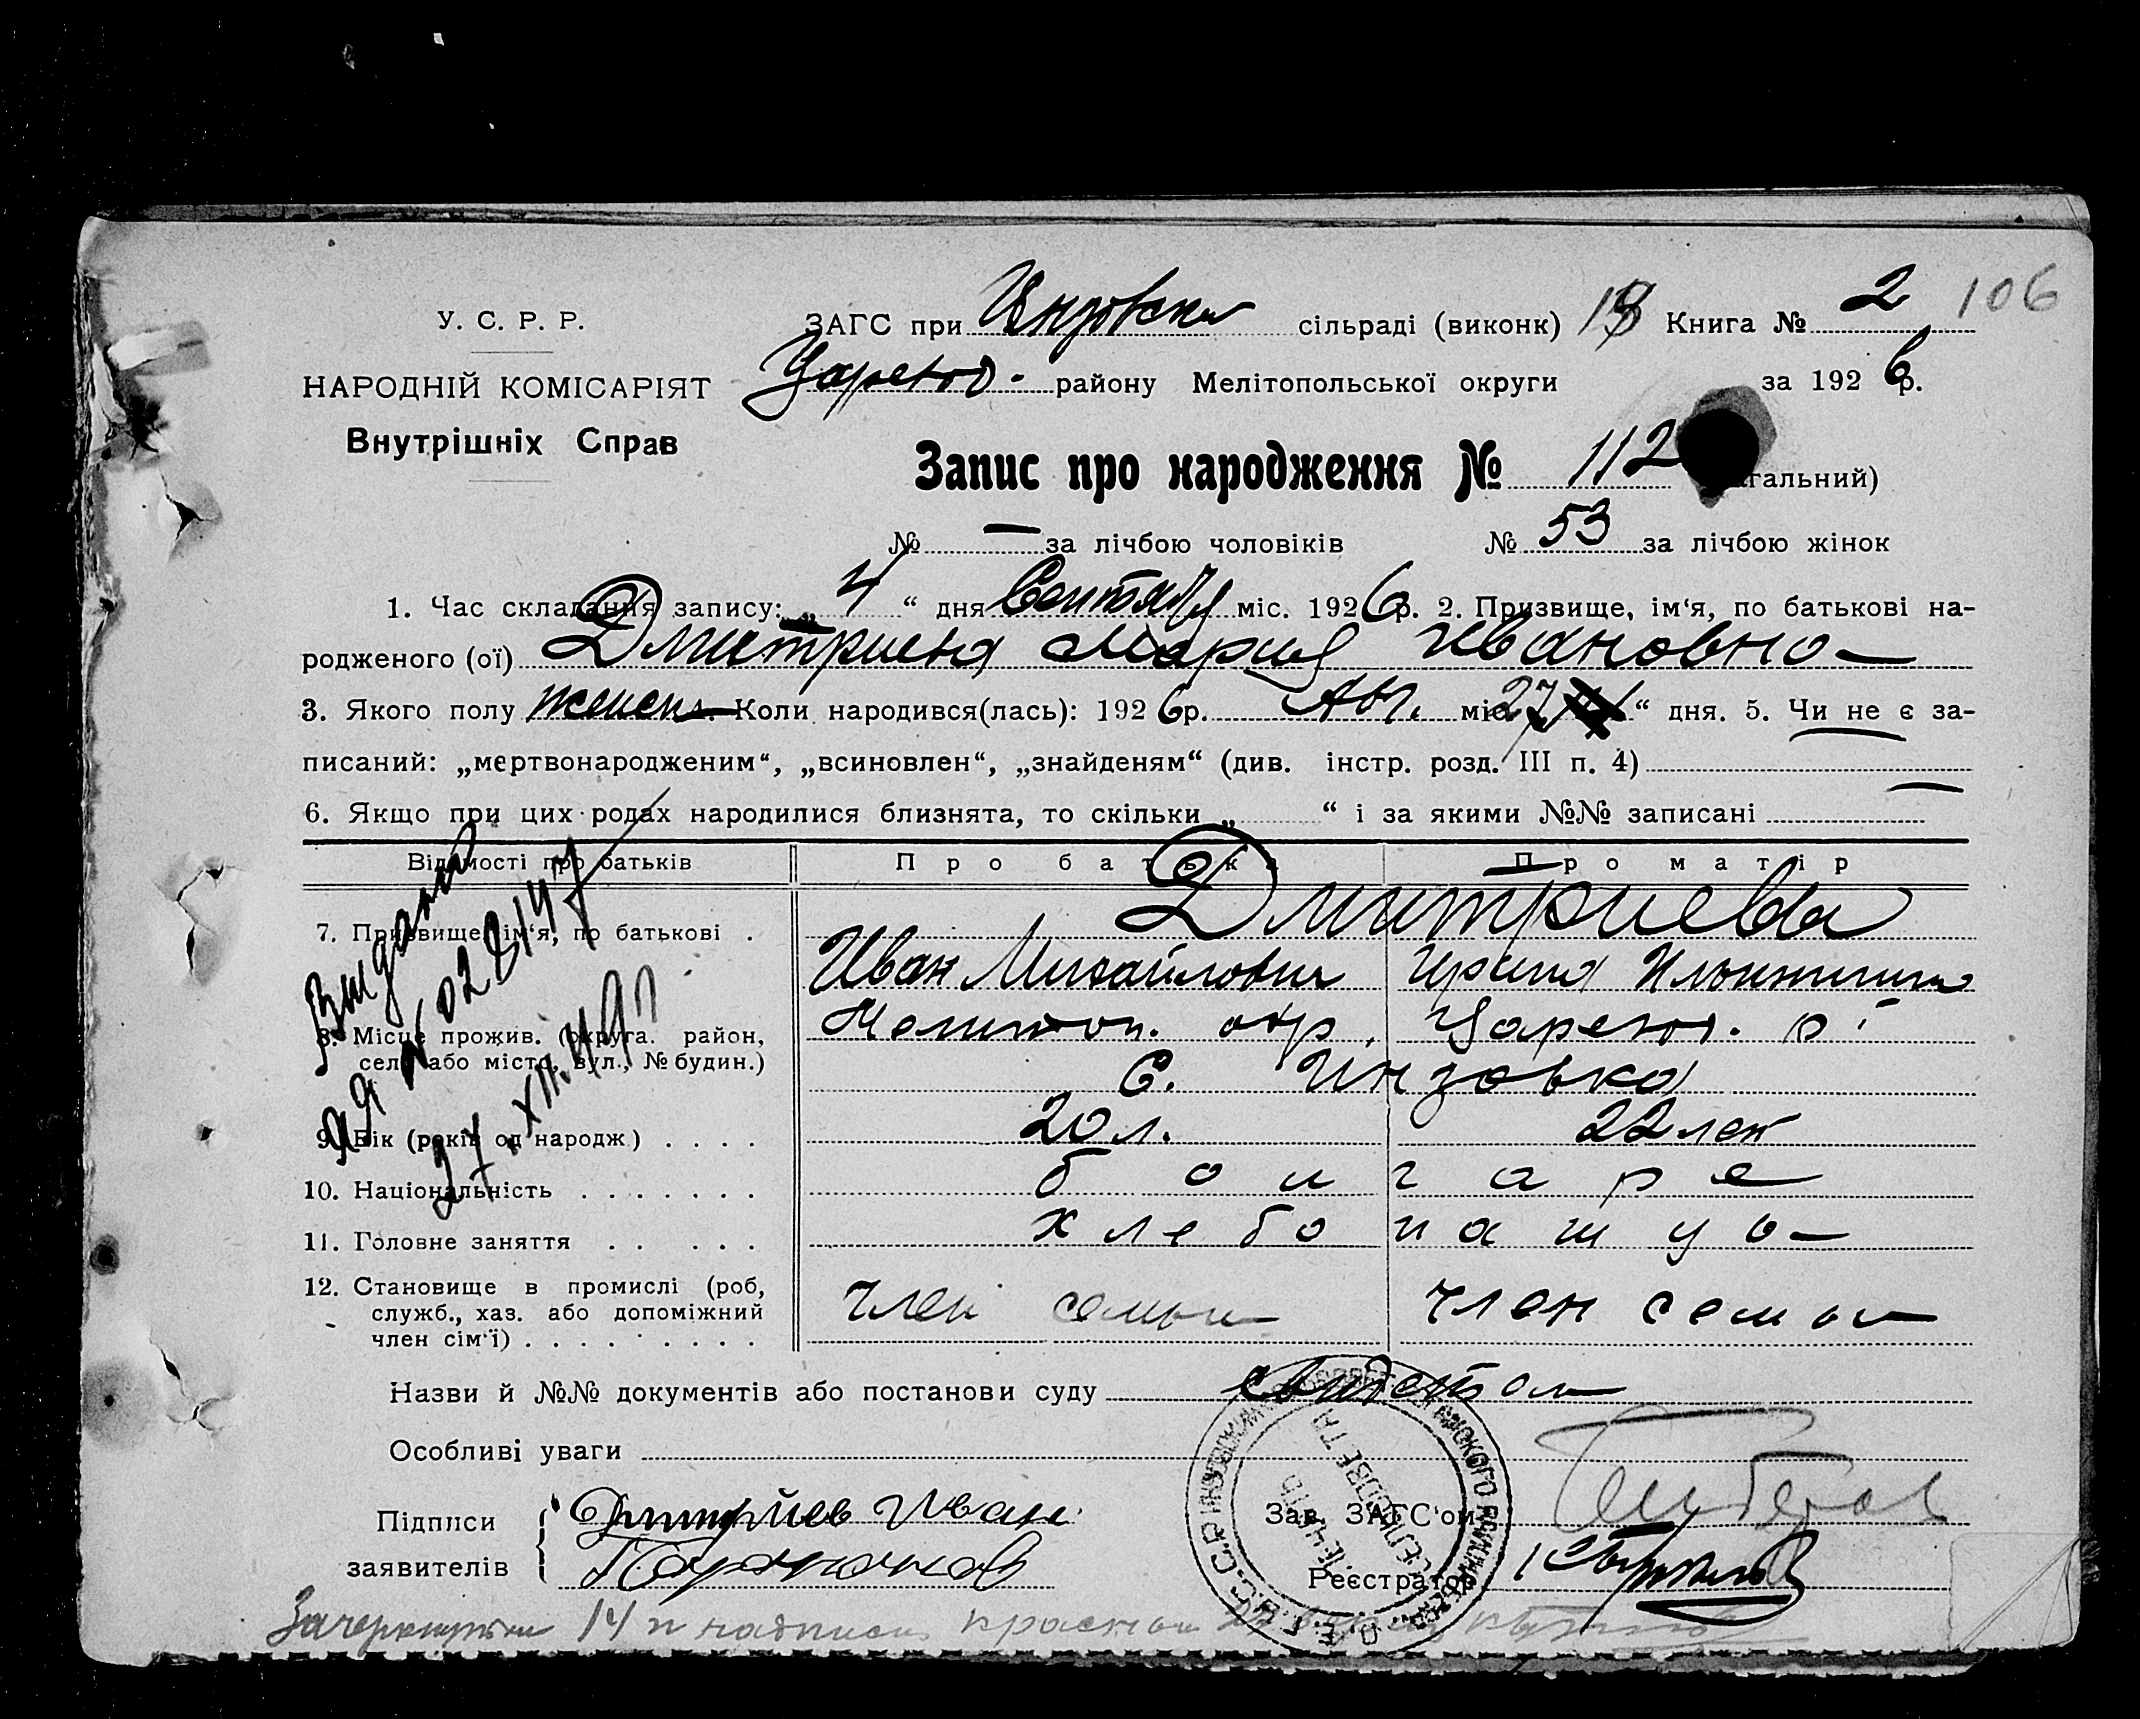 106
У. С. Р. Р.
НАРОДНІЙ КОМІСАРІЯТ
Внутрішніх Справ
ЗАГС при Инзовском сільраді (виконк) Книга № 2
Царевод. району Мелітопольської округи за 1926 р.
Запис про народження № 112 гальний)
№ — за лічбою чоловіків № 53 за лічбою жінок
1. Час складання запису: „ 4 “ дня Сентября міс. 1926 р. 2. Призвище, ім‘я, по батькові на-
родженого (ої) Дмитриева Мария Ивановна
3. Якого полу женск. Коли народився(лась): 1926 р. Авг. міс. 27 “ дня. 5. Чи не є за-
писаний: „мертвонародженим“, „всиновлен“, „знайденям“ (див. інстр. розд. III п. 4)
6. Якщо при цих родах народилися близнята, то скільки „ “ і за якими №№ записані —
Відомості про батьків Про батька Про матір
7. Призвище, ім‘я, по батькові . Дмитриева
Иван Михайлович Ирина
8. Місце прожив. (округа, район, село або місто, вул., № будин.) Мелитоп. окр. Царевод. р.
С. Инзовка
9. Вік (років од народж.) . . . . 20 л. 22 лет
10. Національність . . . . . . . болгаре
11. Головне заняття . . . . . . хлебопашцы
12. Становище в промислі (роб, служб., хаз. або допоміжний член сім‘ї) . . . . . . . . член семьи член семьи
Выдано
№ 028147
27.XII.49 г
Назви й №№ документів або постанови суду
Особливі уваги
Підписи заявителів Дмитриев Иван
Зав. ЗАГС‘ом
Реєстратор
ПЕЧАТЬ
СЕЛЬСОВЕТА
Зачеркнутое 14 и надписано красным